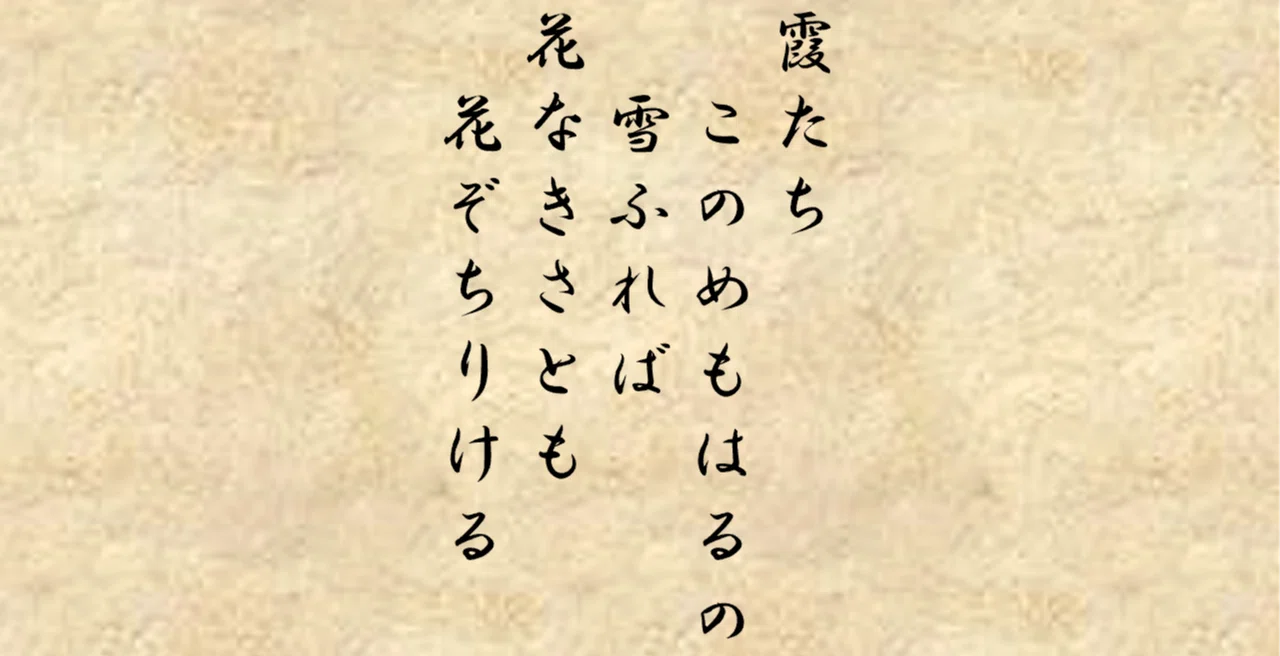 霞たち
このめもはるの
雪ふれば
花なきさとも
花ぞちりける